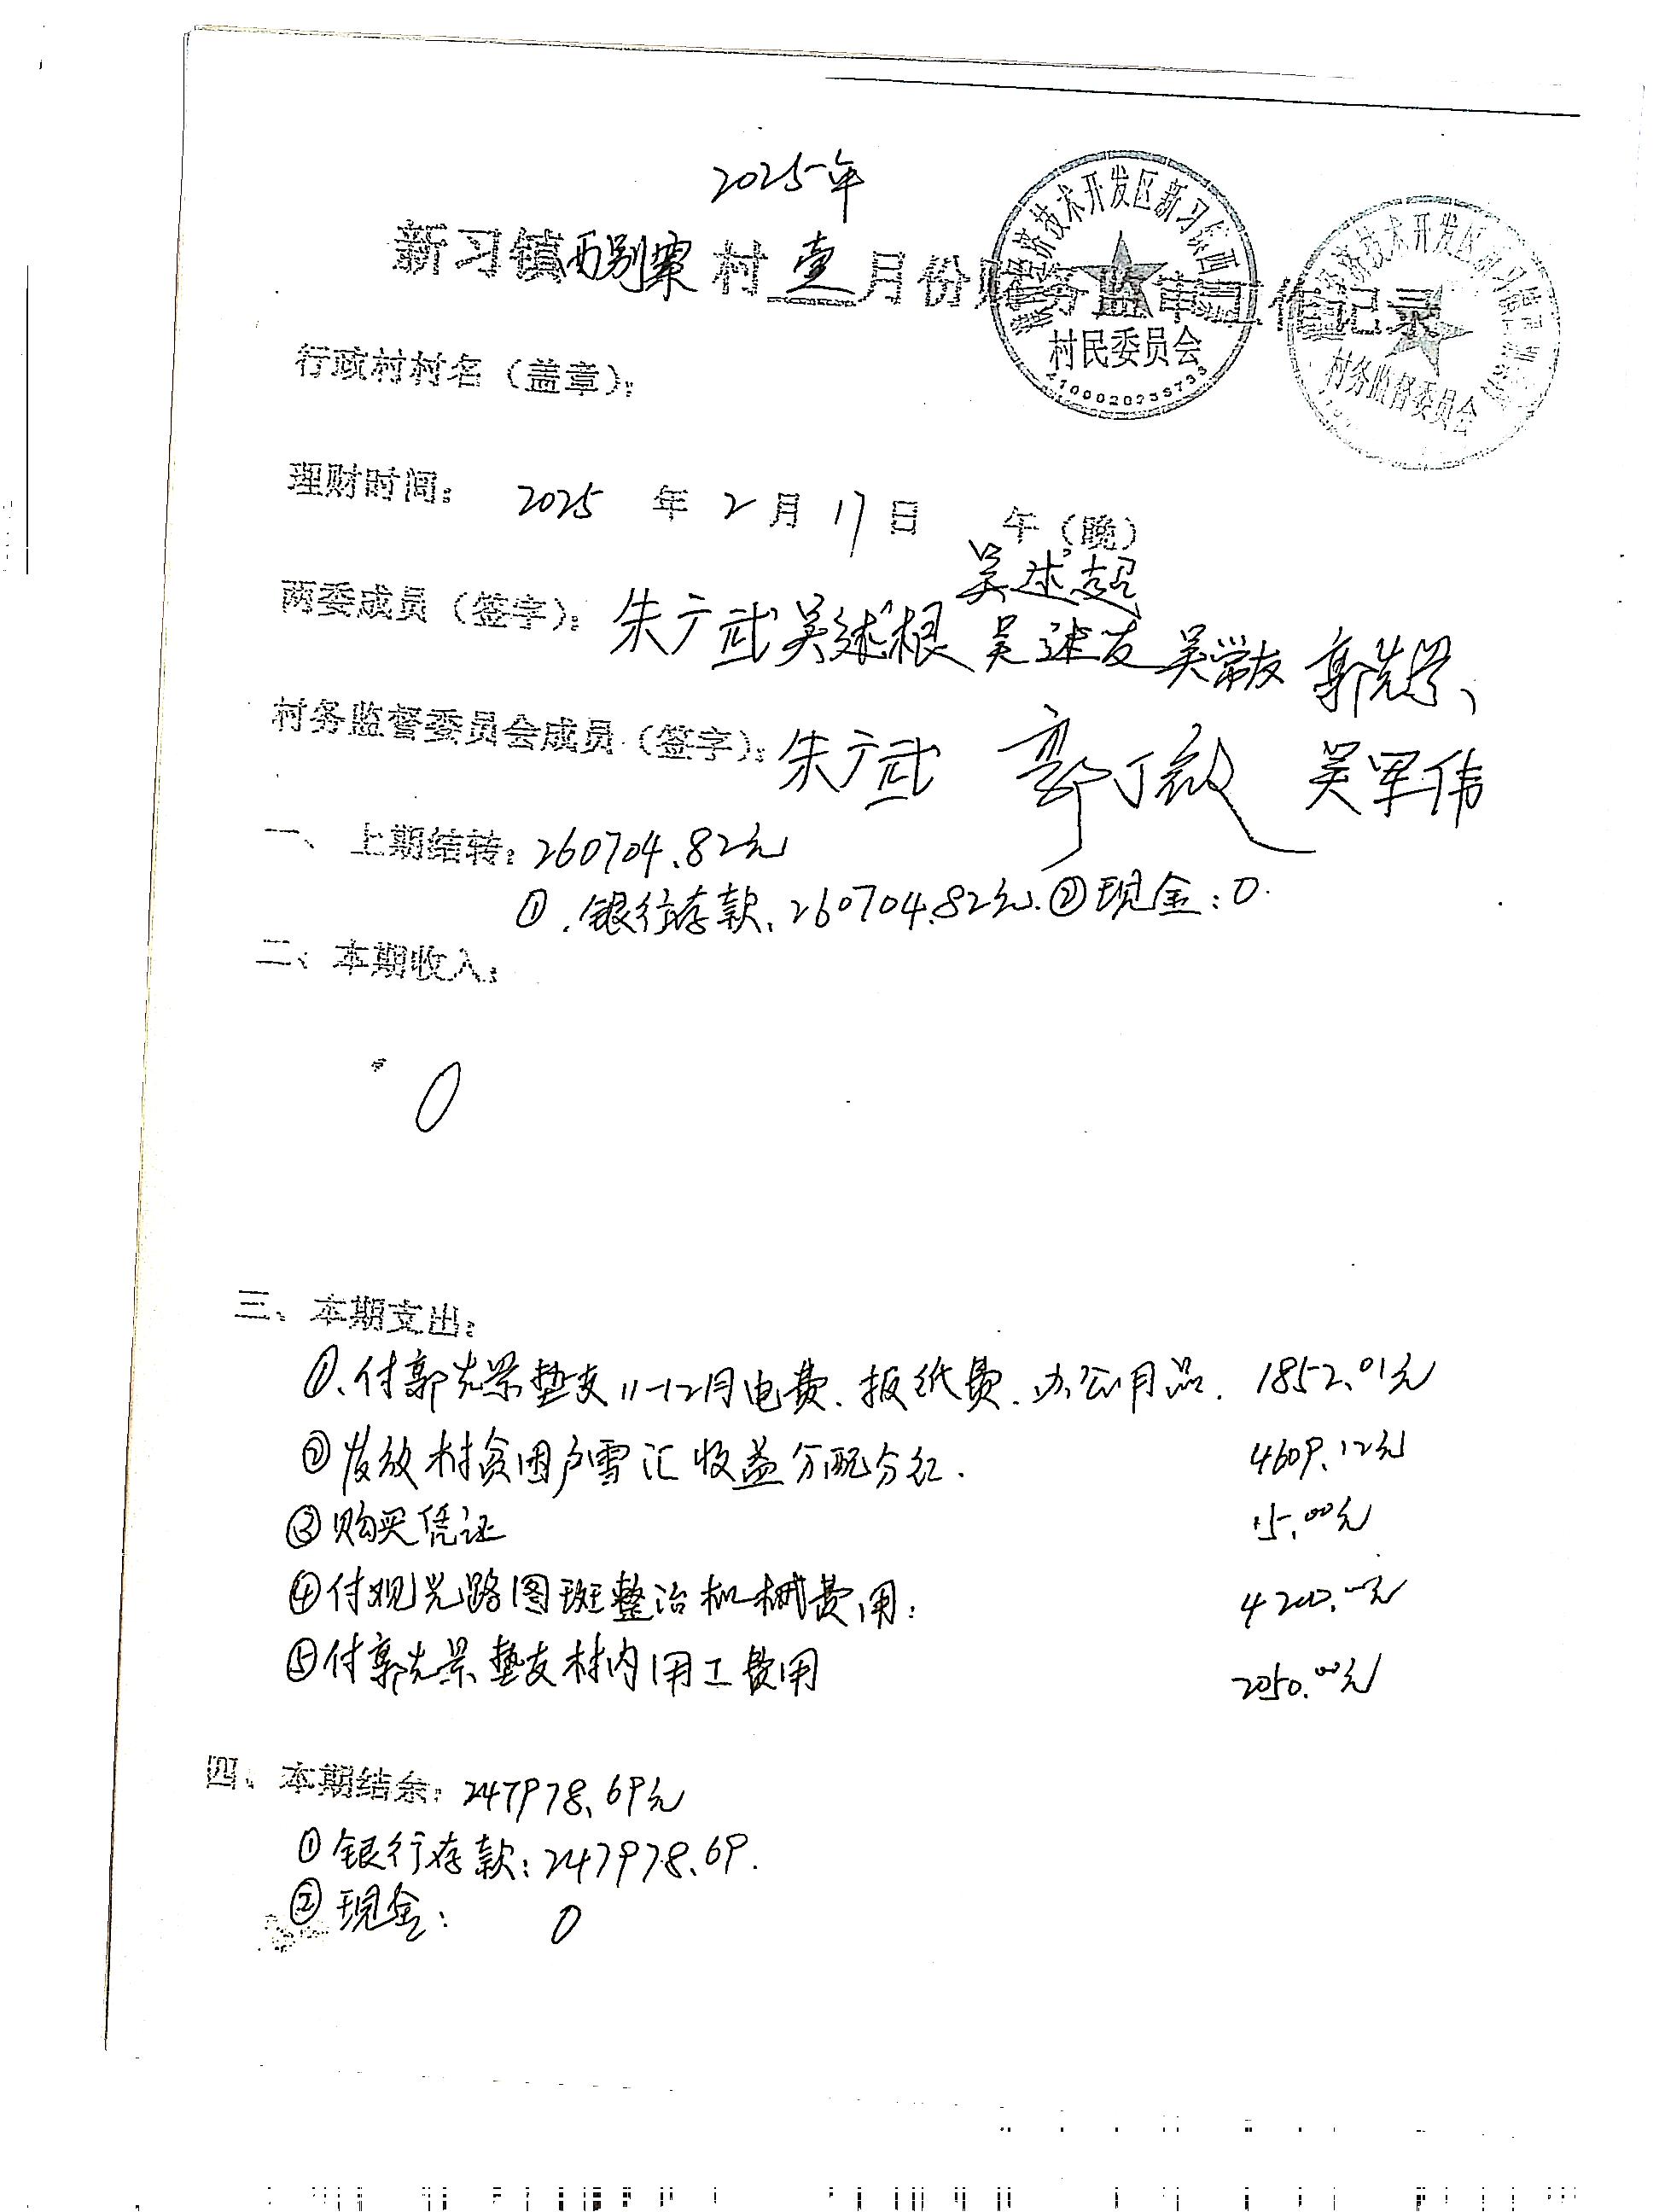 2025年
新习镇西别寨村壹月份财务监审工作记录
经济技术开发区新习镇西
村民委员会
经济技术开发区新习镇
村务监督委员会
行政村村名（盖章）：
理财时间： 2025 年 2 月 17 日 午（晚）
吴述超
两委成员（签字）：朱广武 吴继根 吴述友 吴常友 郭先学、
村务监督委员会成员（签字）：朱广武 郭丁教 吴军伟
一、上期结转：260704.82元
①.银行存款、260704.82元.②现金：0.
二、本期收入：
0
三、本期支出：
①、付郭先景垫支11-12月电费.报纸费.办公用品. 1852.01元
②发放村贫困户雪汇收益分配分红. 4609.12元
③购买凭证 15.00元
④付观光路图斑整治机械费用： 4200.00元
⑤付郭先景垫支村内用工费用 2050.00元
四、本期结余：247978.69元
①银行存款：247978.69.
②现金： 0